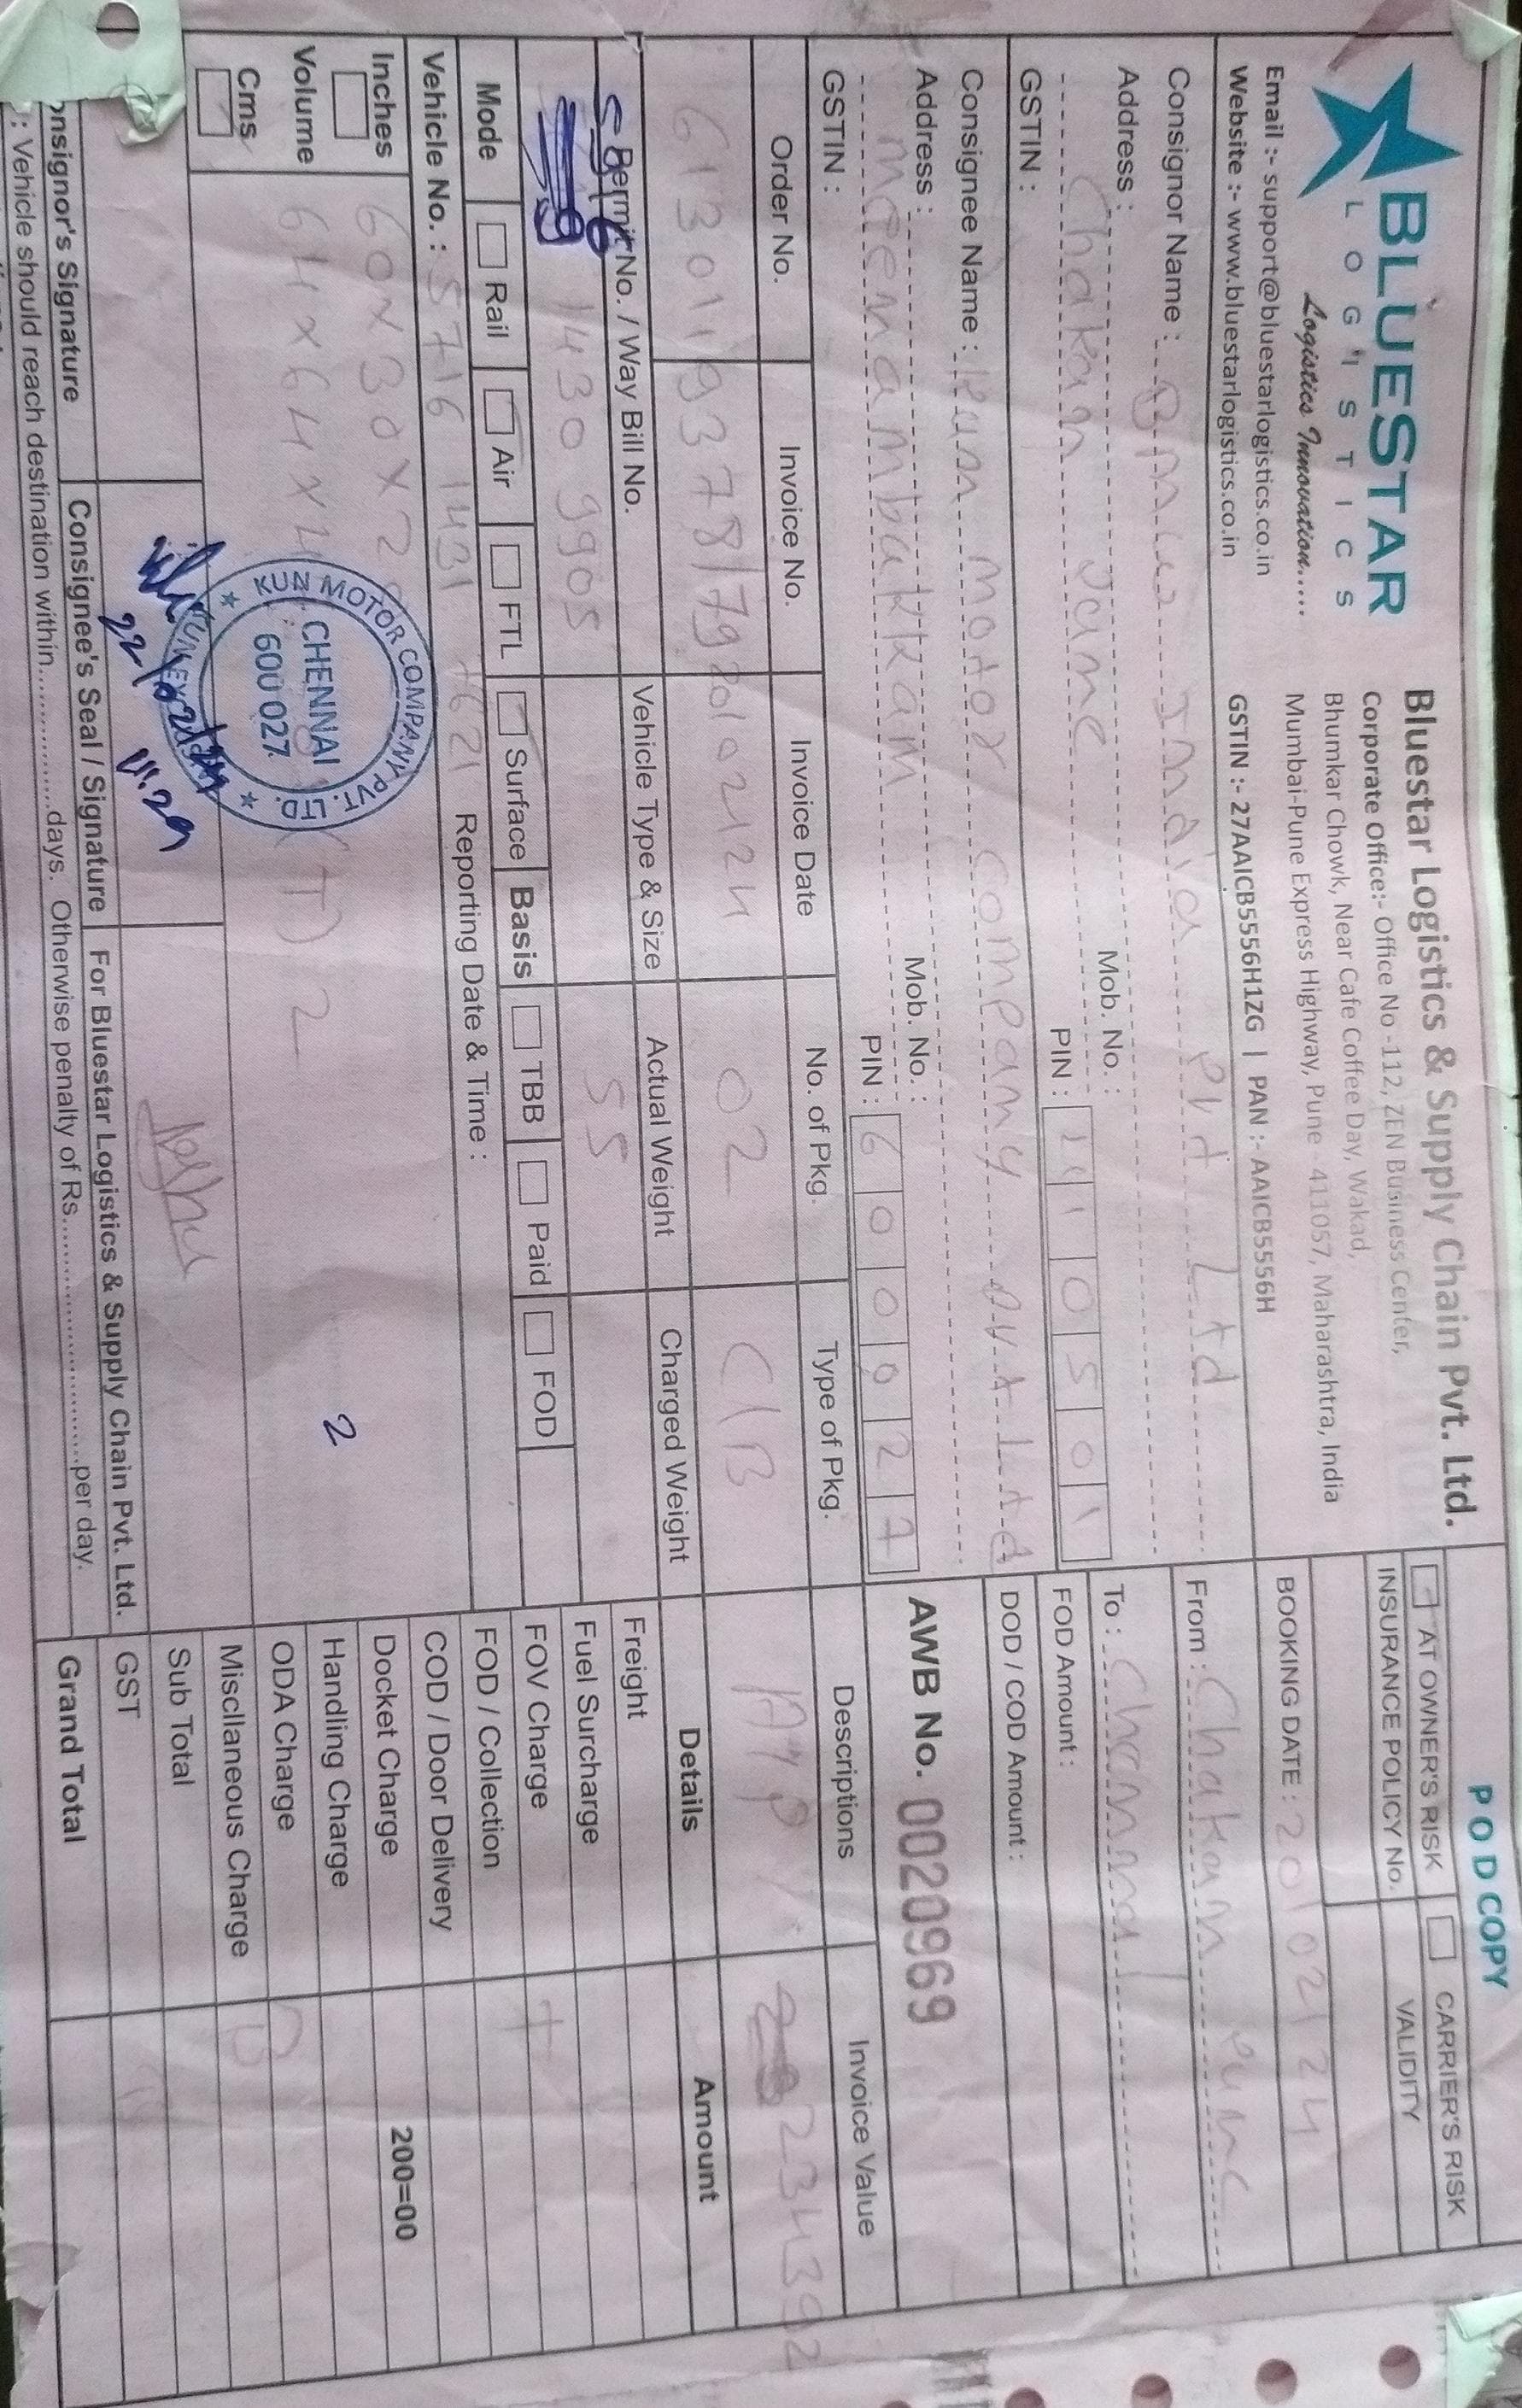 POD COPY
BLUESTAR
LOGISTICS
Logistics Innovation.....
Email :- support@bluestarlogistics.co.in
Website :- www.bluestarlogistics.co.in
Bluestar Logistics & Supply Chain Pvt. Ltd.
Corporate Office:- Office No -112, ZEN Business Center,
Bhumkar Chowk, Near Cafe Coffee Day, Wakad,
Mumbai-Pune Express Highway, Pune - 411057, Maharashtra, India
GSTIN :- 27AAICB5556H1ZG | PAN :- AAICB5556H
AT OWNER'S RISK CARRIER'S RISK
INSURANCE POLICY No. VALIDITY
BOOKING DATE : 20/02/24
From : Chakan Pune
To : Chennai
FOD Amount :
DOD / COD Amount :
AWB No. 0020969
Consignor Name : BMW India Pvt Ltd
Address :
Chakan Pune
Mob. No. :
PIN : 410501
GSTIN :
Consignee Name : Kun Motor Company Pvt Ltd
Address :
Meenambakkam
Mob. No. :
PIN : 600027
GSTIN :
Order No. Invoice No. Invoice Date No. of Pkg. Type of Pkg. Descriptions Invoice Value
6130119378/79 20/02/24 02 C/B A/P 234392
Permit No. / Way Bill No. Vehicle Type & Size Actual Weight Charged Weight Details Amount
5916 1430 9905 55
Mode Rail Air FTL Surface Basis TBB Paid FOD
Vehicle No. : 5716 1431 7621 Reporting Date & Time :
Inches
Volume
Cms
60X30X2
64X64X4 (T) 2
2
KUN MOTOR COMPANY PVT. LTD.
CHENNAI
600 027
22/02/24
11.29
Freight
Fuel Surcharge
FOV Charge
FOD / Collection
COD / Door Delivery
Docket Charge 200=00
Handling Charge
ODA Charge
Miscllaneous Charge
Sub Total
GST
Grand Total
onsignor's Signature Consignee's Seal / Signature For Bluestar Logistics & Supply Chain Pvt. Ltd.
: Vehicle should reach destination within.................days. Otherwise penalty of Rs.............................per day.